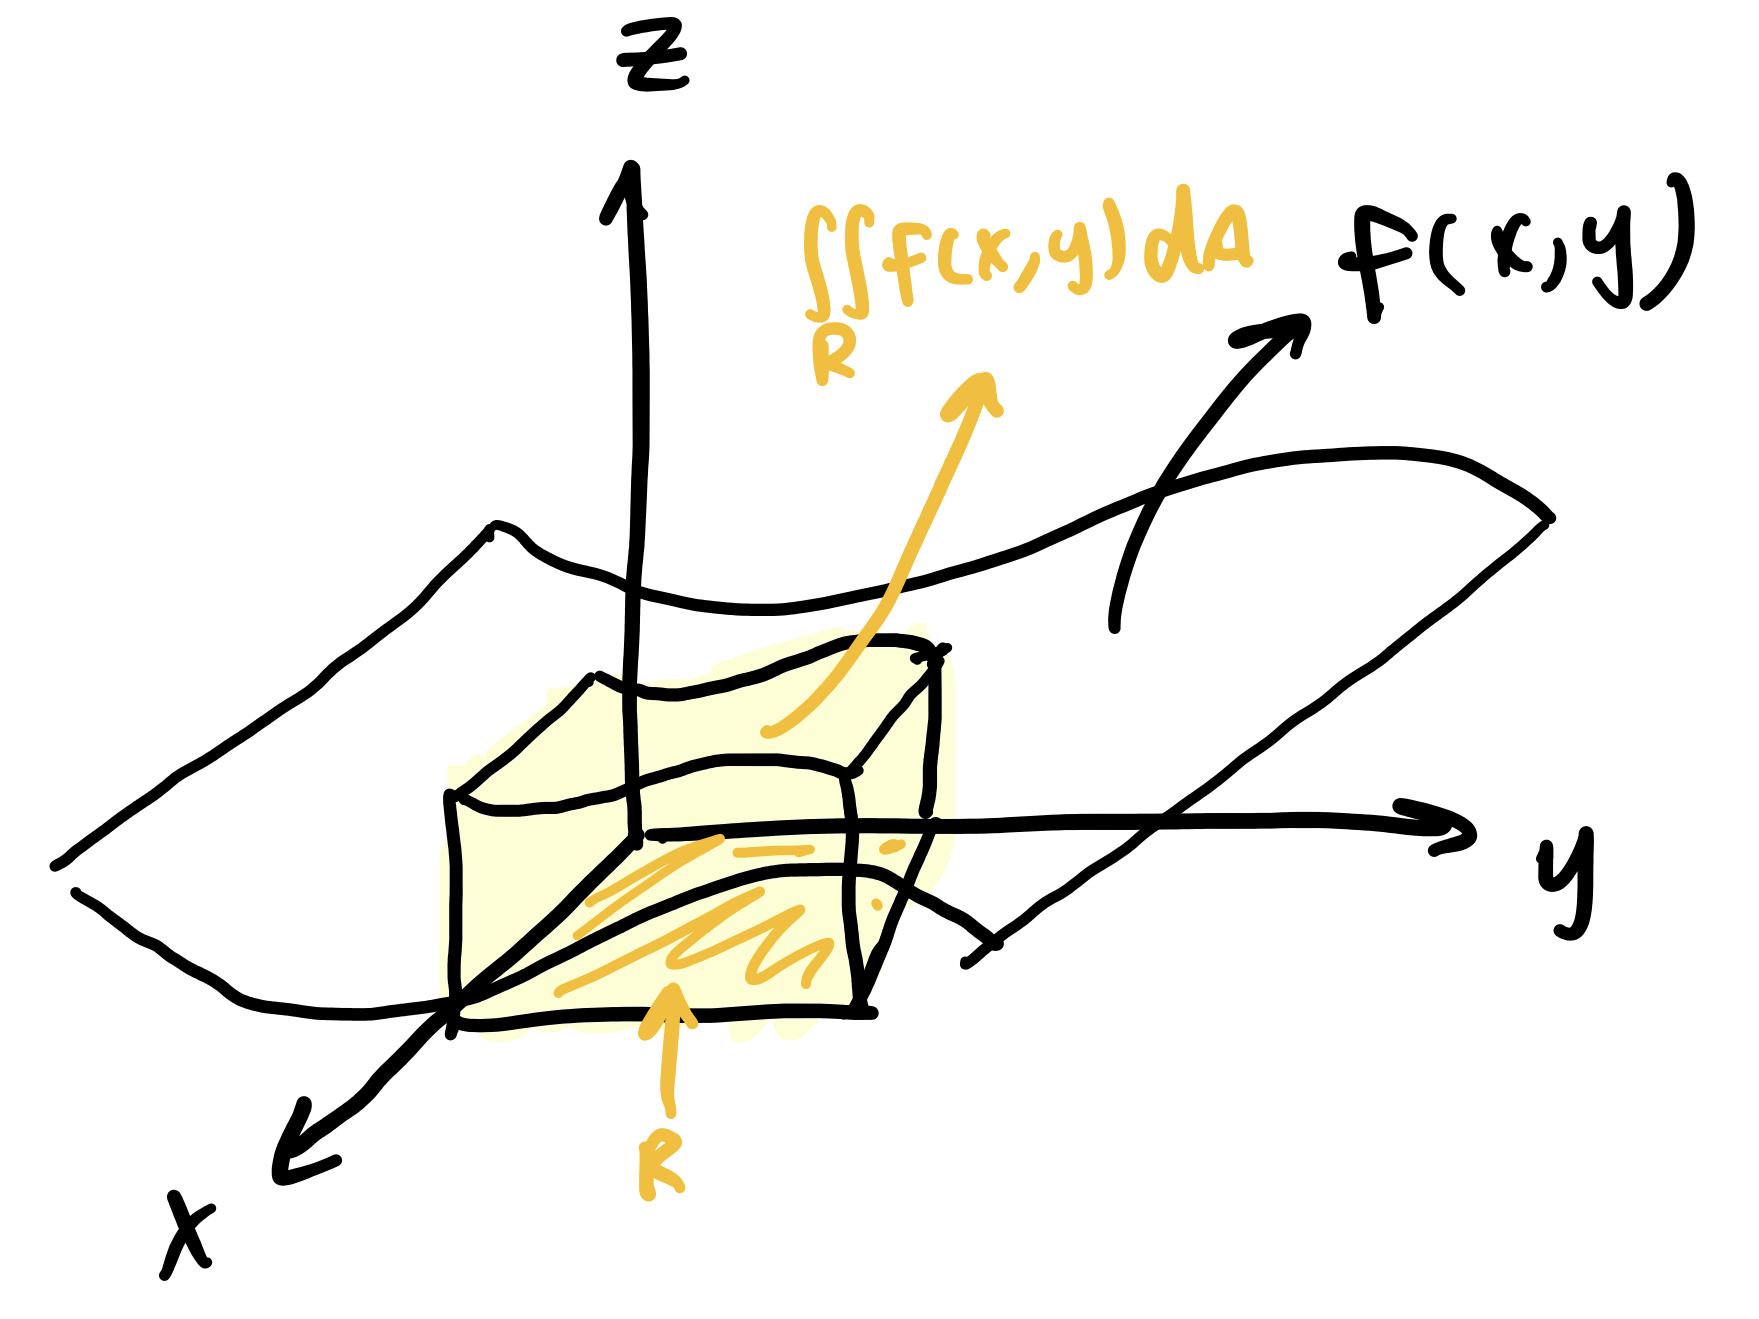 z
∬f(x,y)dA
R
f(x,y)
y
R
x